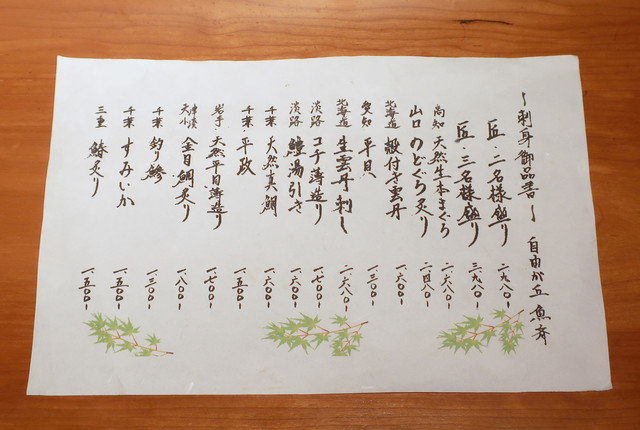 〜刺身御品書〜 自由が丘 魚斉
匠・二名様盛り 二、九八〇-
匠・三名様盛り 三、九八〇-
高知 天然生本まぐろ 二、六八〇-
山口 のどぐろ炙り 二、四八〇-
北海道 殻付き雲丹 一、六〇〇-
愛知 平貝 一、三〇〇-
北海道 生雲丹刺し 二、六八〇-
淡路 コチ薄造り 一、七〇〇-
淡路 鱧湯引き 一、六〇〇-
千葉 天然真鯛 一、六〇〇-
千葉 平政 一、五〇〇-
岩手 天然平目薄造り 一、七〇〇-
天津小湊 金目鯛炙り 一、八〇〇-
千葉 釣り鯵 一、三〇〇-
千葉 すみいか 一、五〇〇-
三重 鰆炙り 一、五〇〇-